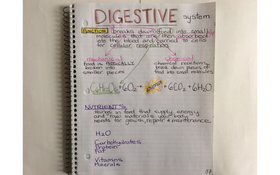 DIGESTIVE system
FUNCTION: breaks down food into small
molecules that are then absorbed
into the blood and carried to cells
for cellular respiration
mechanical
chemical
food is PHYSICALLY
broken into
smaller pieces
chemical reactions
break down pieces of
food into small molecules
C6H12O6 + 6O2 → energy + 6CO2 + 6H2O
NUTRIENTS
things in food that supply energy
and raw materials your body
needs for growth, repair & maintenance
H2O
Carbohydrates
Protein
Fat
Vitamins
Minerals